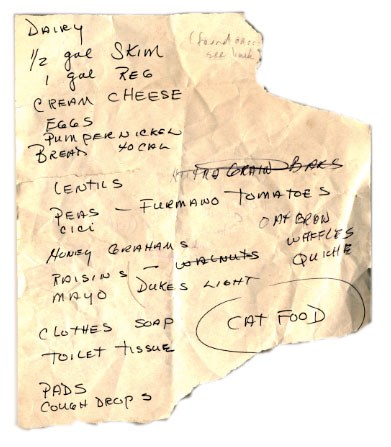 DAIRY
1/2 gal SKIM
1 gal REG
(Found
see back)
CREAM CHEESE
EGGS
PUMPERNICKEL
BREAD 40 CAL
GRAIN BARS
LENTILS
PEAS – FURMANO TOMATOES
CICI
OAT BRAN
WAFFLES
QUICHE
HONEY GRAHAMS
RAISINS – WALNUTS
MAYO DUKES LIGHT
CLOTHES SOAP
CAT FOOD
TOILET TISSUE
PADS
COUGH DROPS